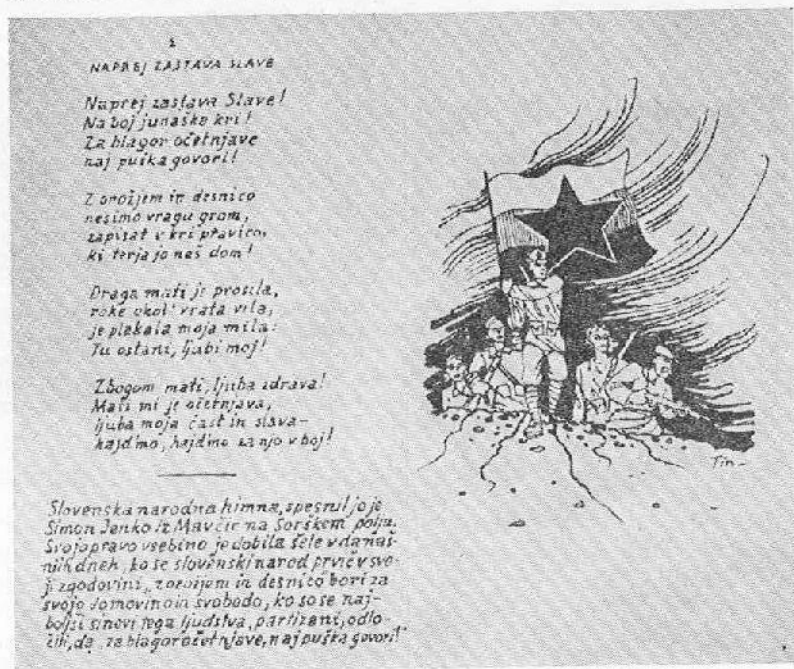 NAPREJ ZASTAVA SLAVE
Naprej zastava Slave!
Na boj junaške kri!
Za blagor očetnjave
naj puška govori!
Z orožjem in desnico
nesimo vragu grom,
zapisat v kri pravico,
ki terja jo naš dom!
Draga mati je prosila,
roke okol' vrata vila,
je plakala moja mila:
Tu ostani, ljubi moj!
Zbogom mati, ljuba zdrava!
Mati mi je očetnjava,
ljuba moja čast in slava-
hajdimo, hajdimo za njo v boj!
Slovenska narodna himna, spesnil jo je
Simon Jenko iz Mavčič na Sorškem polju.
Svojo pravo vsebino je dobila šele v današ-
njih dneh, ko se slovenski narod prvič v svo-
ji zgodovini „z orožjem in desnico bori za
svojo domovino in svobodo, ko so se naj-
boljši sinovi tega ljudstva, partizani, odlo-
čili, da „za blagor očetnjave, naj puška govori!"
Tin-